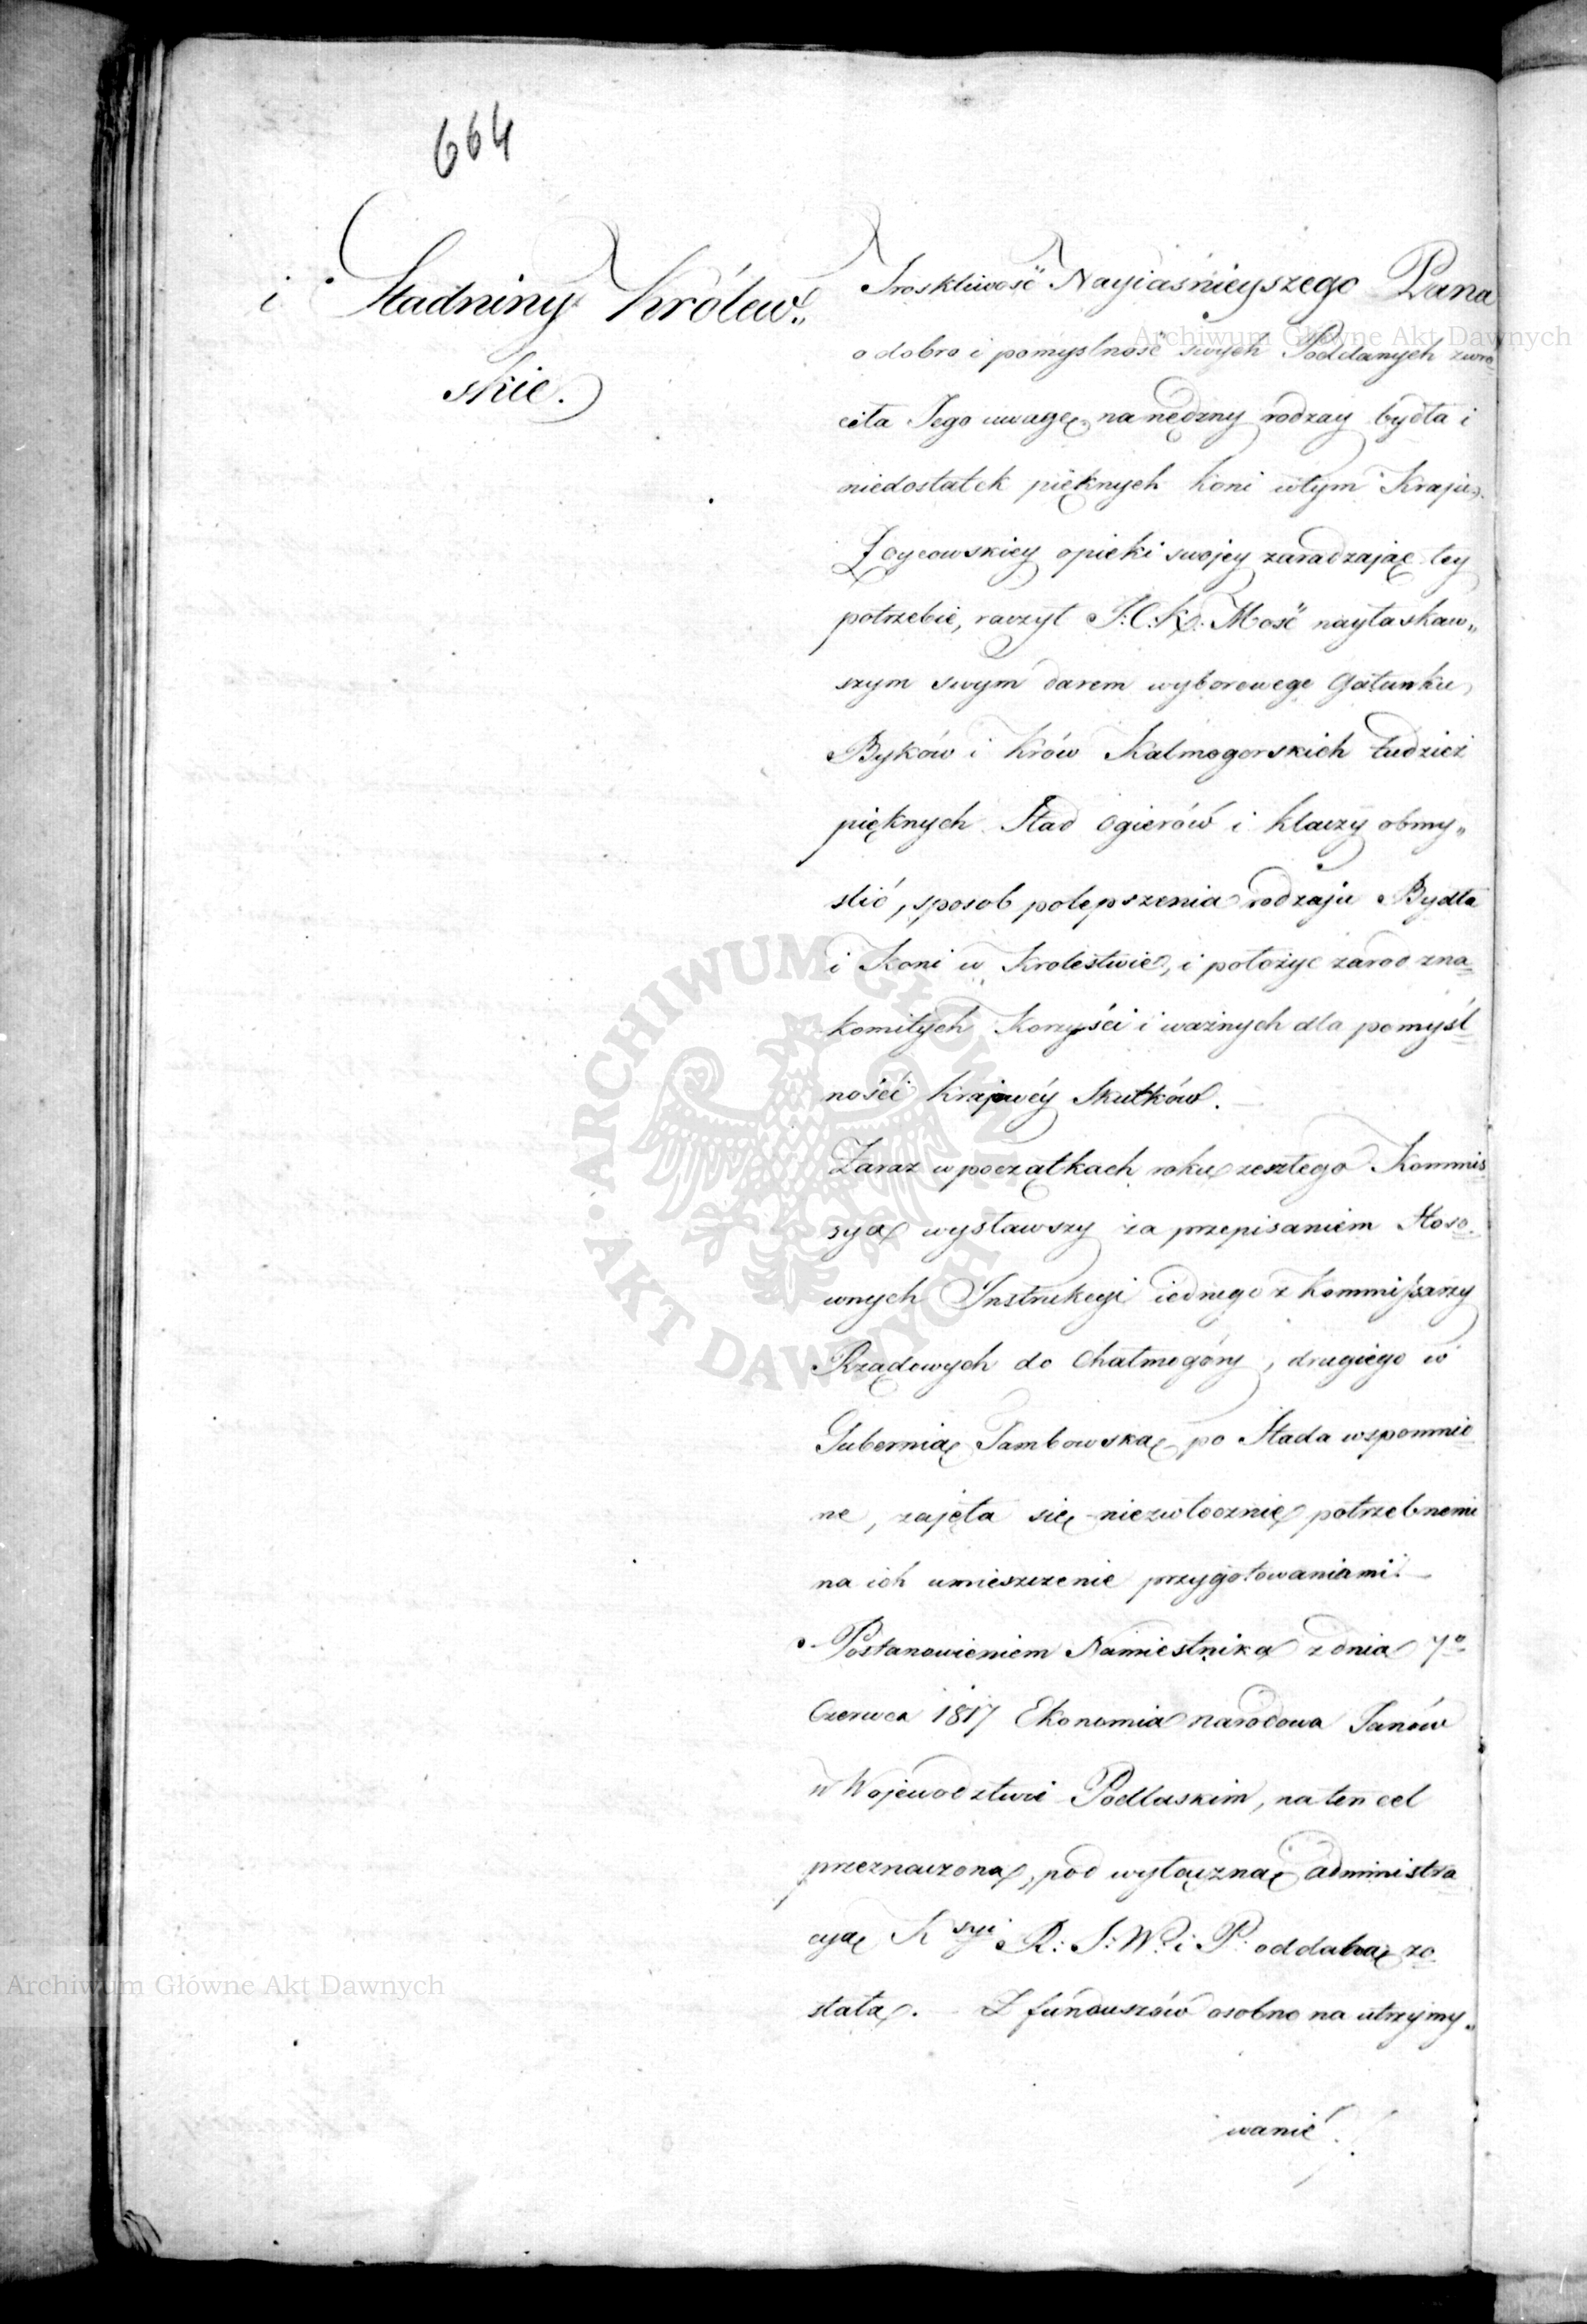 664
i Stadniny Królew„
skie.
Troskliwość Nayiaśnieyszego Pana
o dobro i pomyslność swych Poddanych zwró
ciła Jego uwagę na nędzny rodzay bydła i
niedostatek pięknych koni w tym Kraju.
Z oycowskiey opieki swojey zaradzając tey
potrzebie, raczył J: C: K: Mość nayłaskaw„
szym swym darem wyborowego Gatunku
Byków i Krów Kalmogorskich tudzież
pięknych Stad Ogierów i klaczy obmy„
slić, sposob polepszenia rodzaju Bydła
i Koni w Krolestwie, i położyć zarod zna
komitych Korzyści i ważnych dla pomyśl
ności krajowéy Skutków. —
Zaraz w początkach roku zeszłego Kommis
sya wysławszy za przepisaniem Stoso
wnych Instrukcyi iednego z Kommissarzy
Rządowych do Chałmogóry, drugiego w
Gubernią Tambowską po Stada wspomnio
ne, zajęła się niezwłocznie potrzebnemi
na ich umieszczenie przygotowaniami. —
Postanowieniem Namiestnika z dnia 7º
Czerwca 1817 Ekonomia narodowa Janów
w Wojewodztwie Podlaskim, na ten cel
przeznaczona, pod wyłączną administra
cyą Kssyi R: S: W: i P: oddaną zo
stała. — Z funduszów osobno na utrzymy„
wanie
Archiwum Główne Akt Dawnych
Archiwum Główne Akt Dawnych
ARCHIWUM GŁÓWNE AKT DAWNYCH